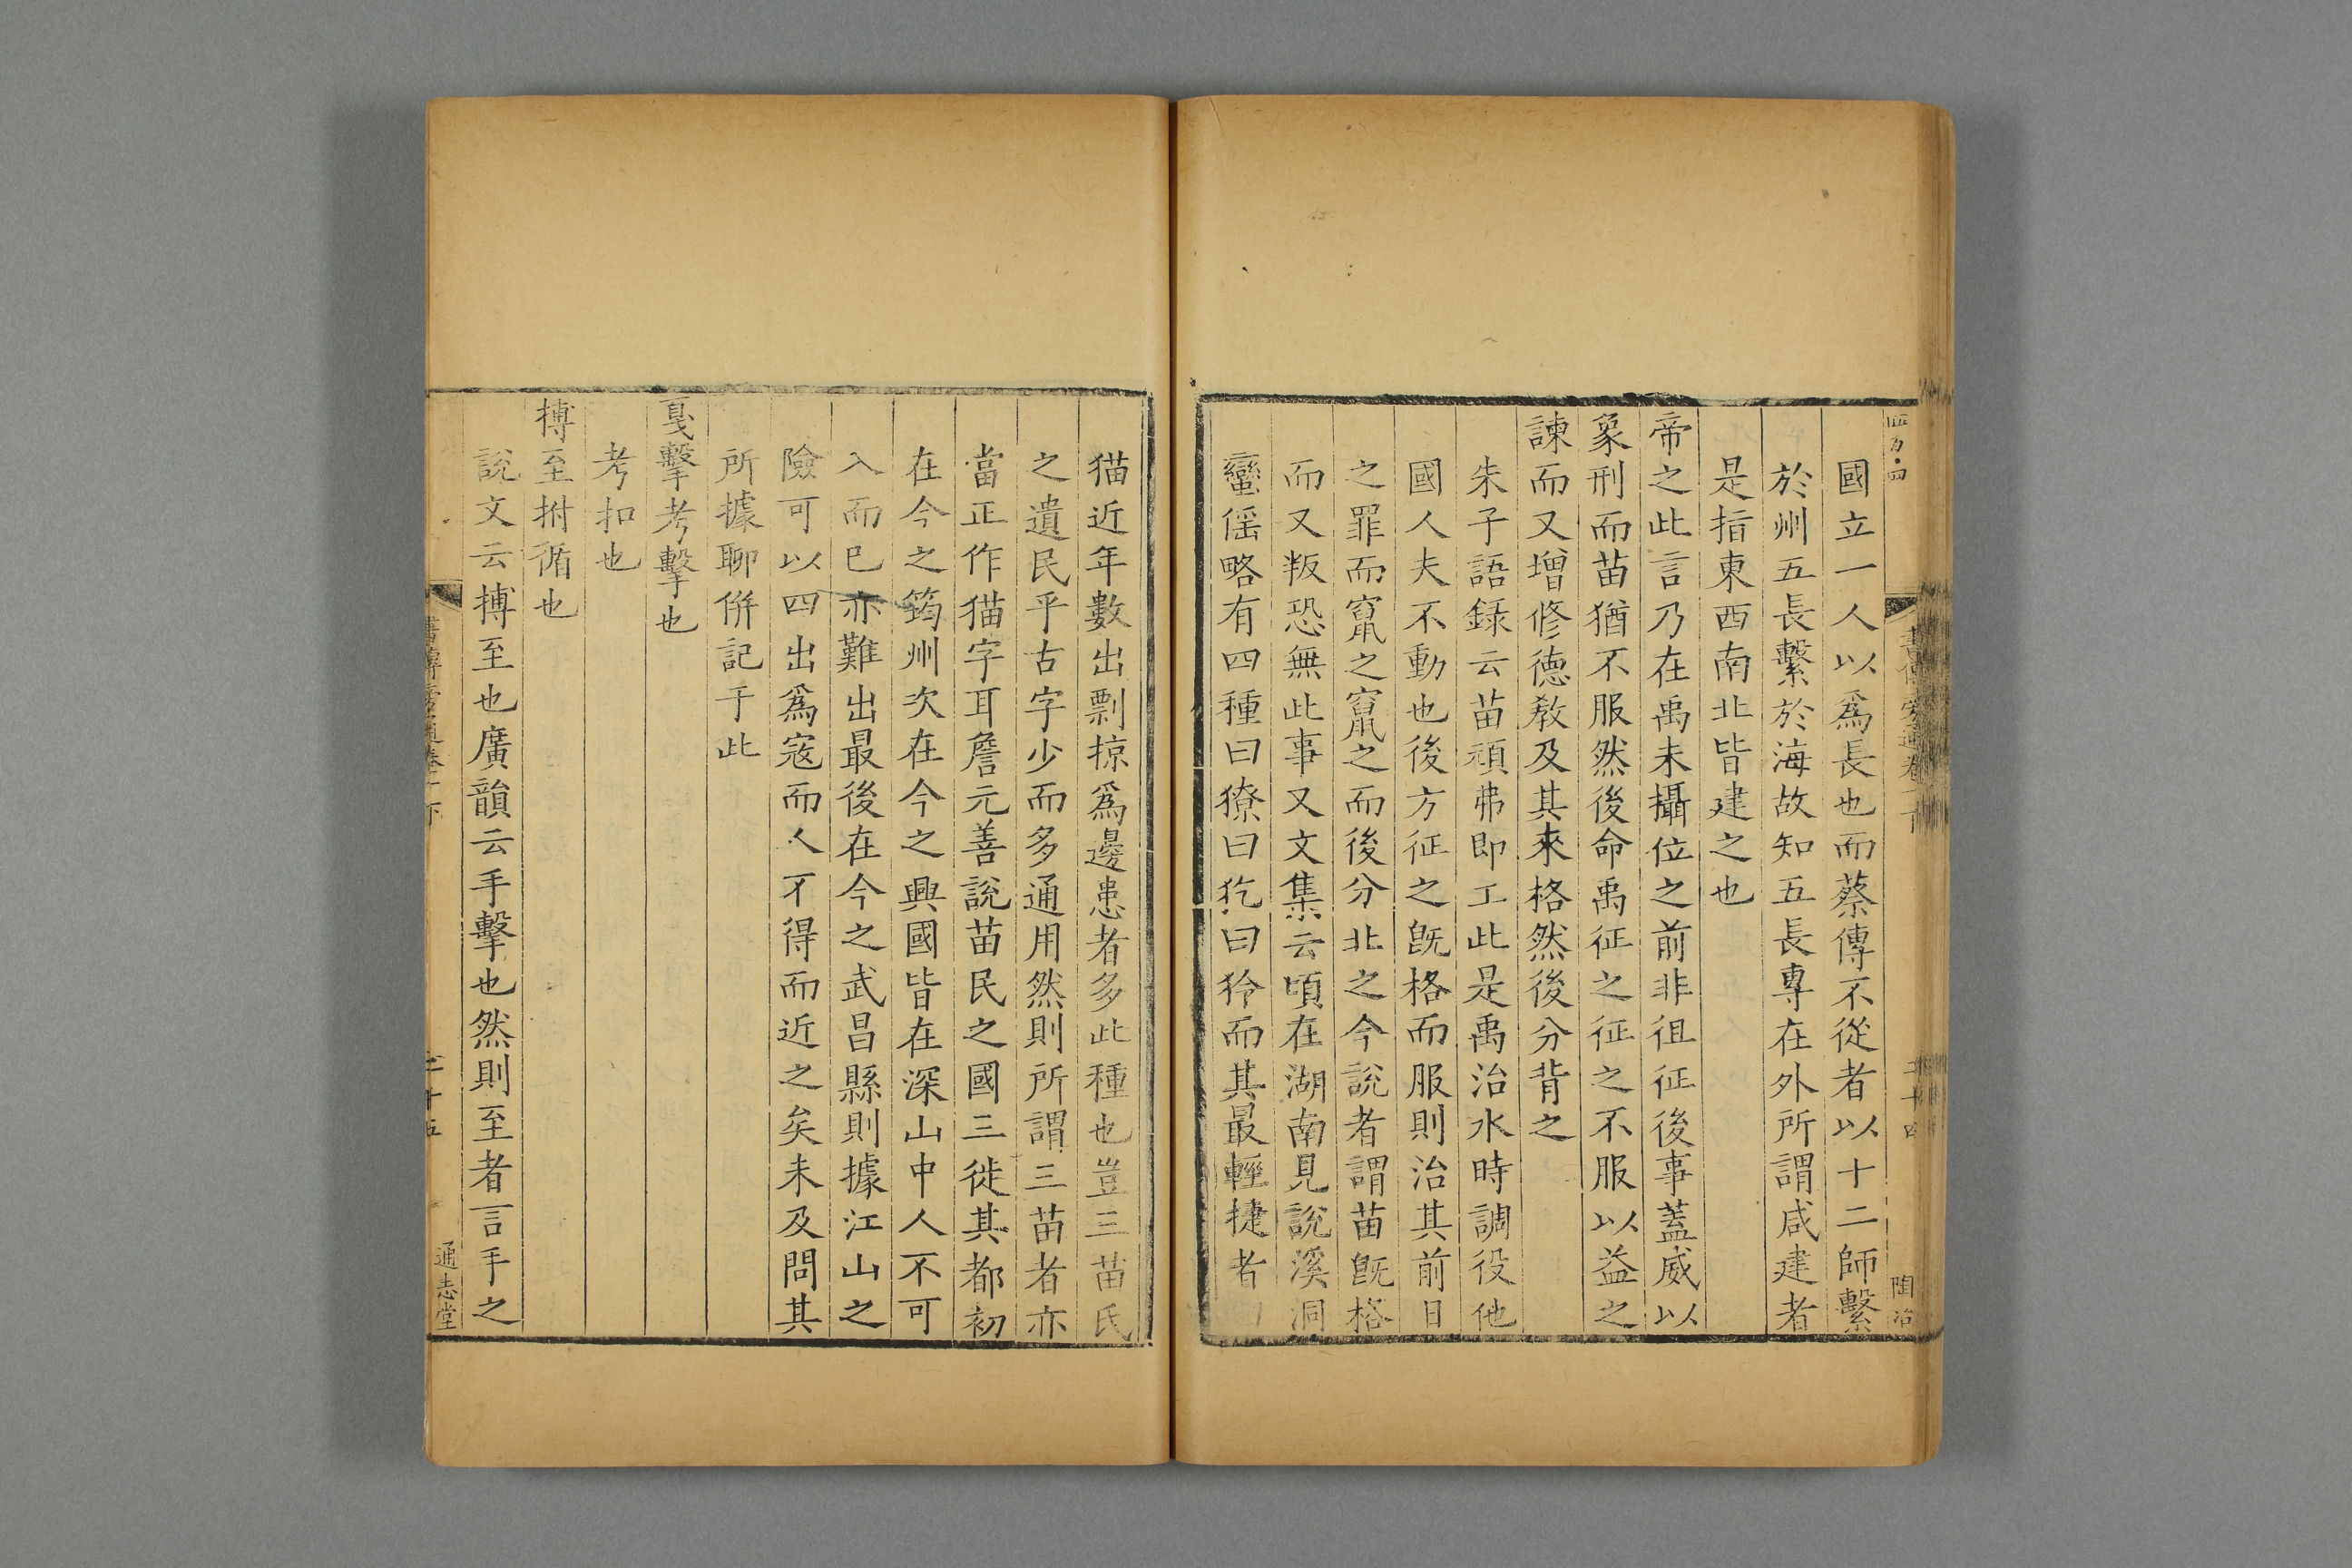 國立一人以爲長也而蔡傳不從者以十二師繫
於州五長繫於海故知五長專在外所謂咸建者
是指東西南北皆建之也
帝之此言乃在禹未攝位之前非徂征後事蓋威以
象刑而苗猶不服然後命禹征之征之不服以益之
諫而又增修德敎及其來格然後分背之
朱子語録云苗頑弗即工此是禹治水時調役他
國人夫不動也後方征之旣格而服則治其前日
之罪而竄之竄之而後分北之今說者謂苗旣格
而又叛恐無此事又文集云頃在湖南見說溪洞
蠻傜略有四種曰獠曰犵曰狑而其最輕捷者
猫近年數出剽掠爲邊患者多此種也豈三苗氏
之遺民乎古字少而多通用然則所謂三苗者亦
當正作猫字耳詹元善說苗民之國三徙其都初
在今之筠州次在今之興國皆在深山中人不可
入而已亦難出最後在今之武昌縣則據江山之
險可以四出爲寇而人不得而近之矣未及問其
所據聊併記于此
戛擊考擊也
考扣也
搏至拊循也
說文云搏至也廣韻云手擊也然則至者言手之
書傳旁通卷一下
二十五
通志堂